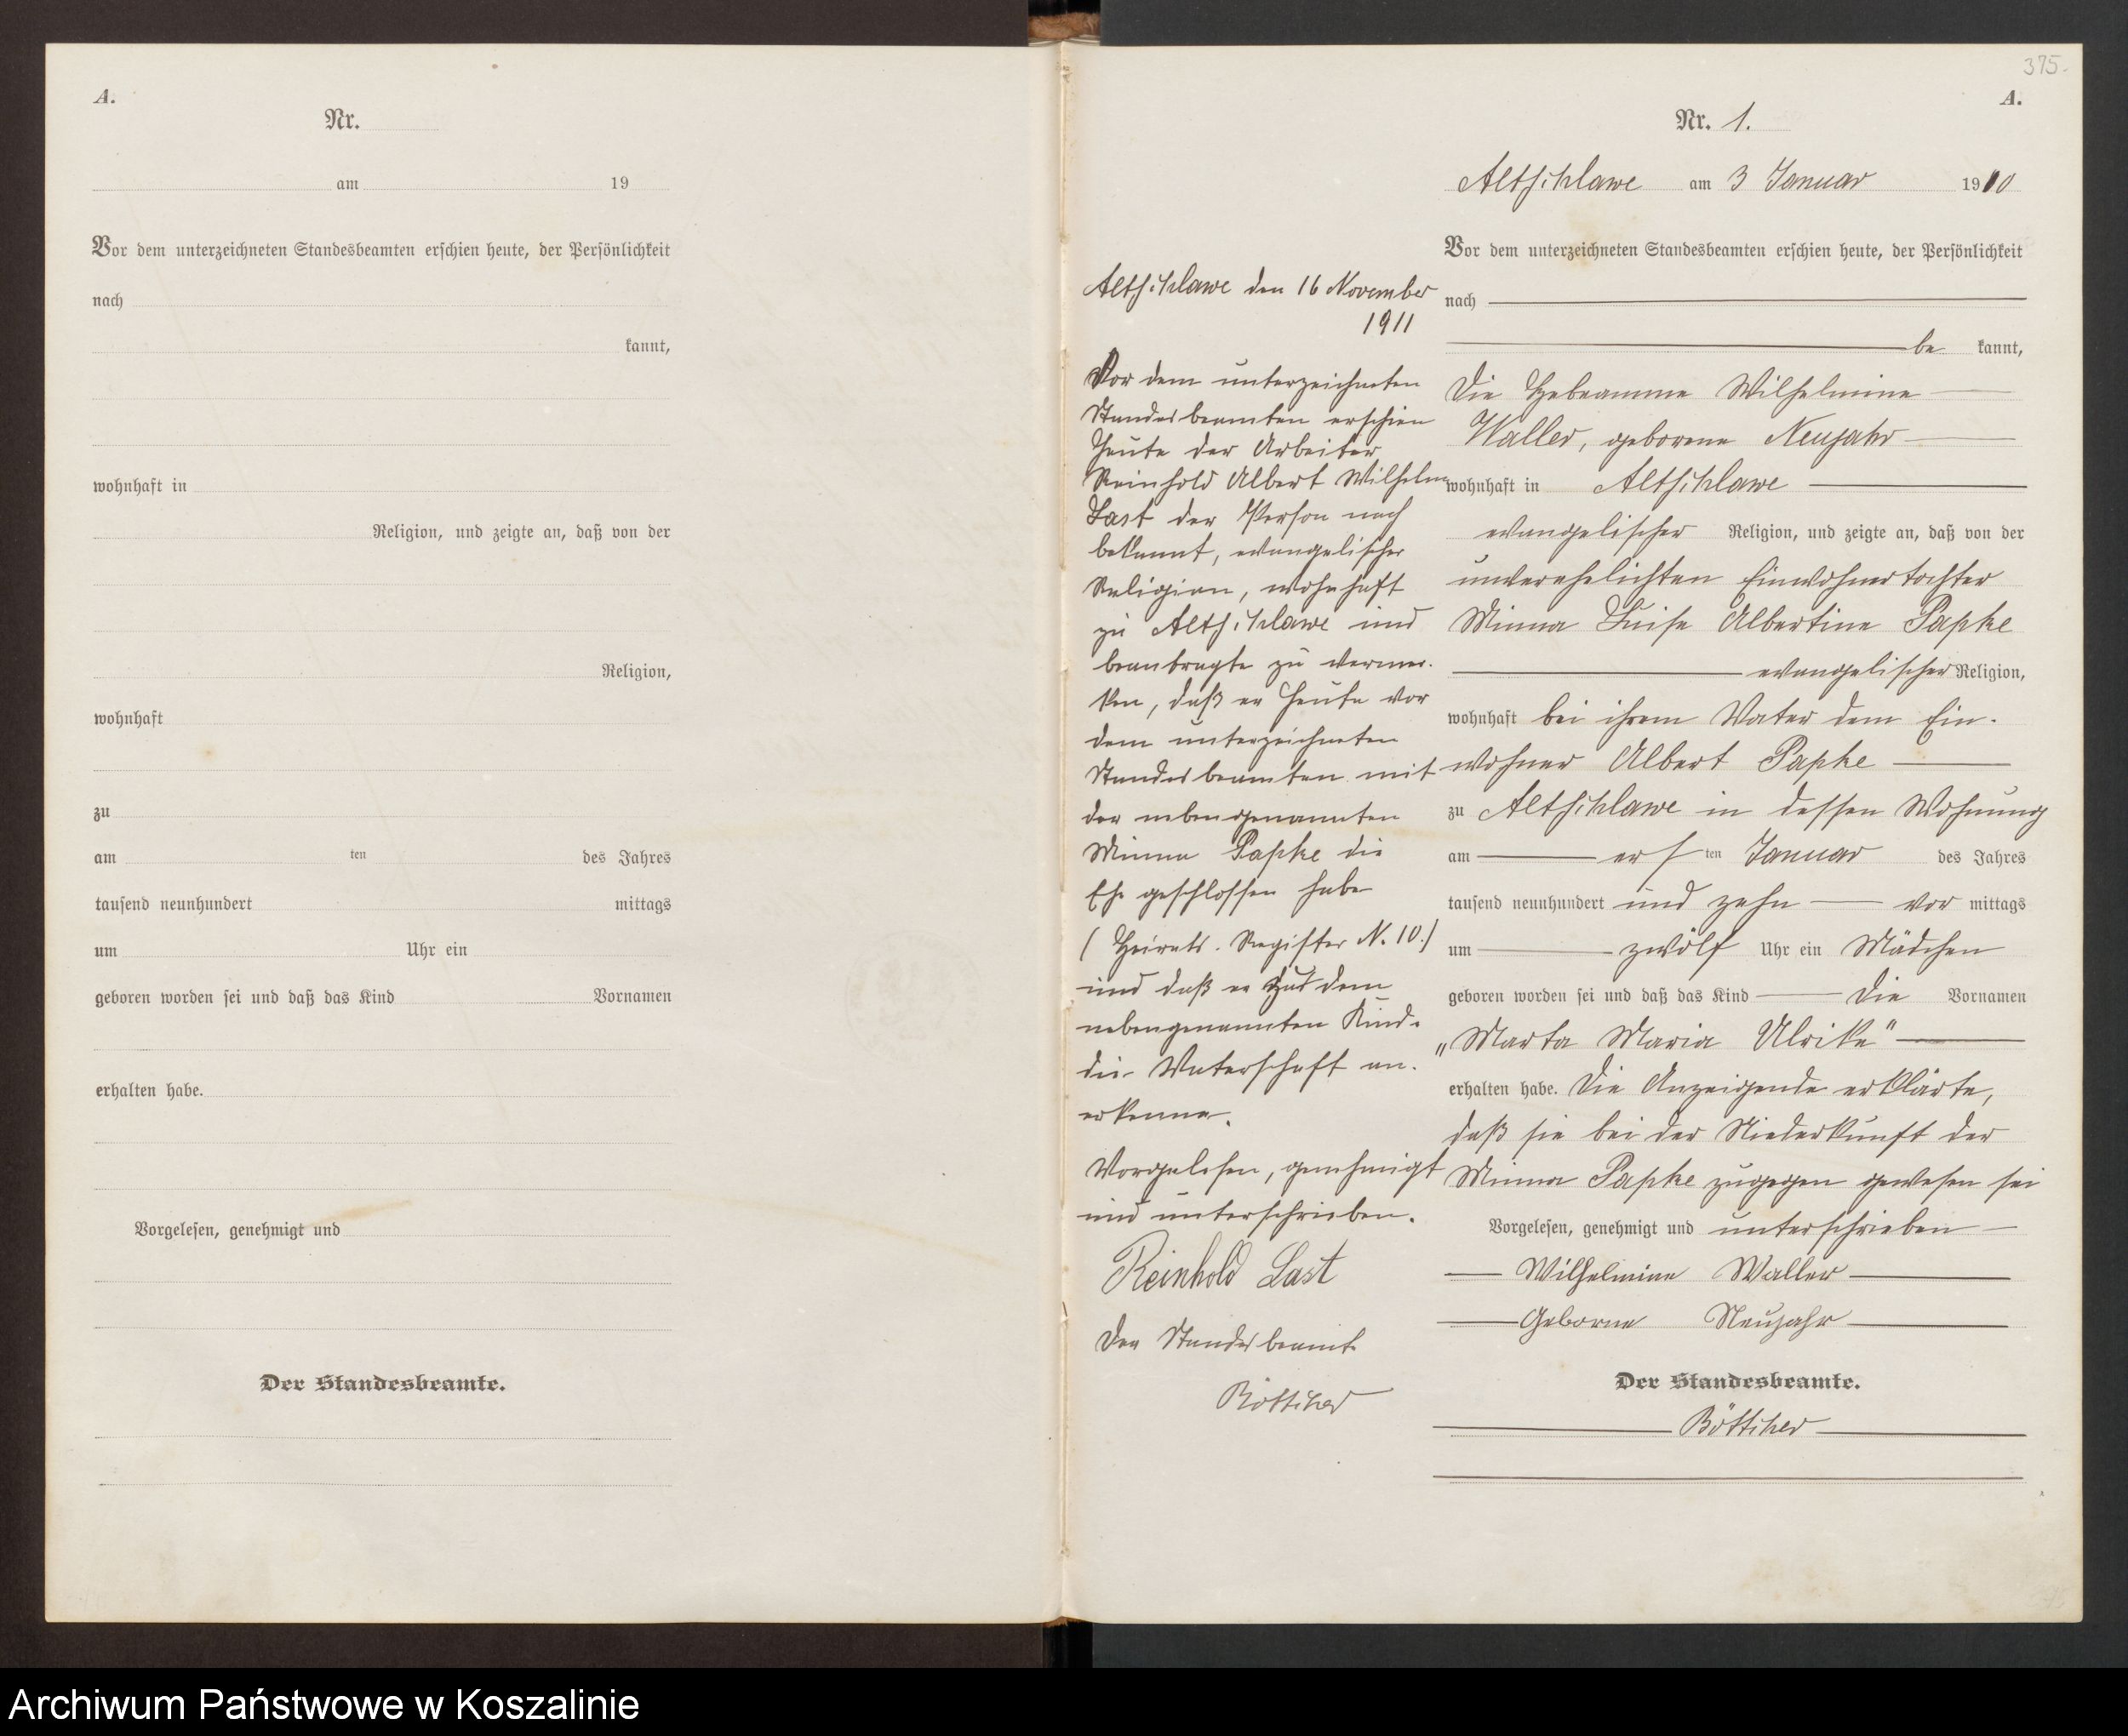 A.
Nr.
am 19
Vor dem unterzeichneten Standesbeamten erschien heute, der Persönlichkeit
nach
kannt,
wohnhaft in
Religion, und zeigte an, daß von der
Religion,
wohnhaft
zu
am ten des Jahres
tausend neunhundert mittags
um Uhr ein
geboren worden sei und daß das Kind Vornamen
erhalten habe.
Vorgelesen, genehmigt und
Der Standesbeamte.
Altschlawe den 16 November
1911
Vor dem unterzeichneten
Standesbeamten erschien
heute der Arbeiter
Reinhold Albert Wilhelm
Last der Person nach
bekannt, evangelischer
Religion, wohnhaft
zu Altschlawe und
beantragte zu vermer-
ken, daß er heute vor
dem unterzeichneten
Standesbeamten mit
der nebengenannten
Minna Papke die
Ehe geschlossen habe
(Heirats-Register N. 10.)
und daß er zu dem
nebengenannten Kinde
die Vaterschaft an-
erkenne.
Vorgelesen, genehmigt
und unterschrieben.
Reinhold Last
Der Standesbeamte
Böttcher
375.
A.
Nr. 1.
Altschlawe am 3 Januar 1910
Vor dem unterzeichneten Standesbeamten erschien heute, der Persönlichkeit
nach
be kannt,
die Hebeamme Wilhelmine
Waller, geborene Neujahr
wohnhaft in Altschlawe
evangelischer Religion, und zeigte an, daß von der
unverehelichten Einwohnertochter
Minna Luise Albertine Papke
evangelischer Religion,
wohnhaft bei ihrem Vater dem Ein-
wohner Albert Papke
zu Altschlawe in dessen Wohnung
am ersten Januar des Jahres
tausend neunhundert und zehn vor mittags
um zwölf Uhr ein Mädchen
geboren worden sei und daß das Kind die Vornamen
„Marta Maria Ulrike"
erhalten habe. Die Anzeigende erklärte,
daß sie bei der Niederkunft der
Minna Papke zugegen gewesen sei
Vorgelesen, genehmigt und unterschrieben
Wilhelmine Waller
Geborne Neujahr
Der Standesbeamte.
Böttcher
Archiwum Państwowe w Koszalinie